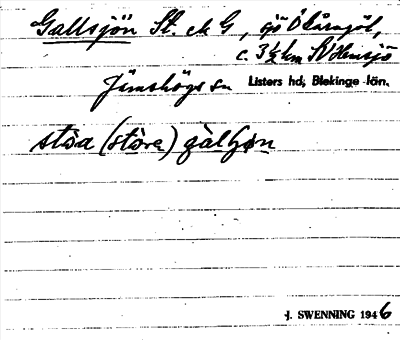 Gallsjön St. ek G, sjö Ö Lårsjöl,
c. 3 ½ km SV Hemsjö
Jämshögs sn Listers hd, Blekinge län.
stöa (störa) gàlʃøn
J. SWENNING 1946